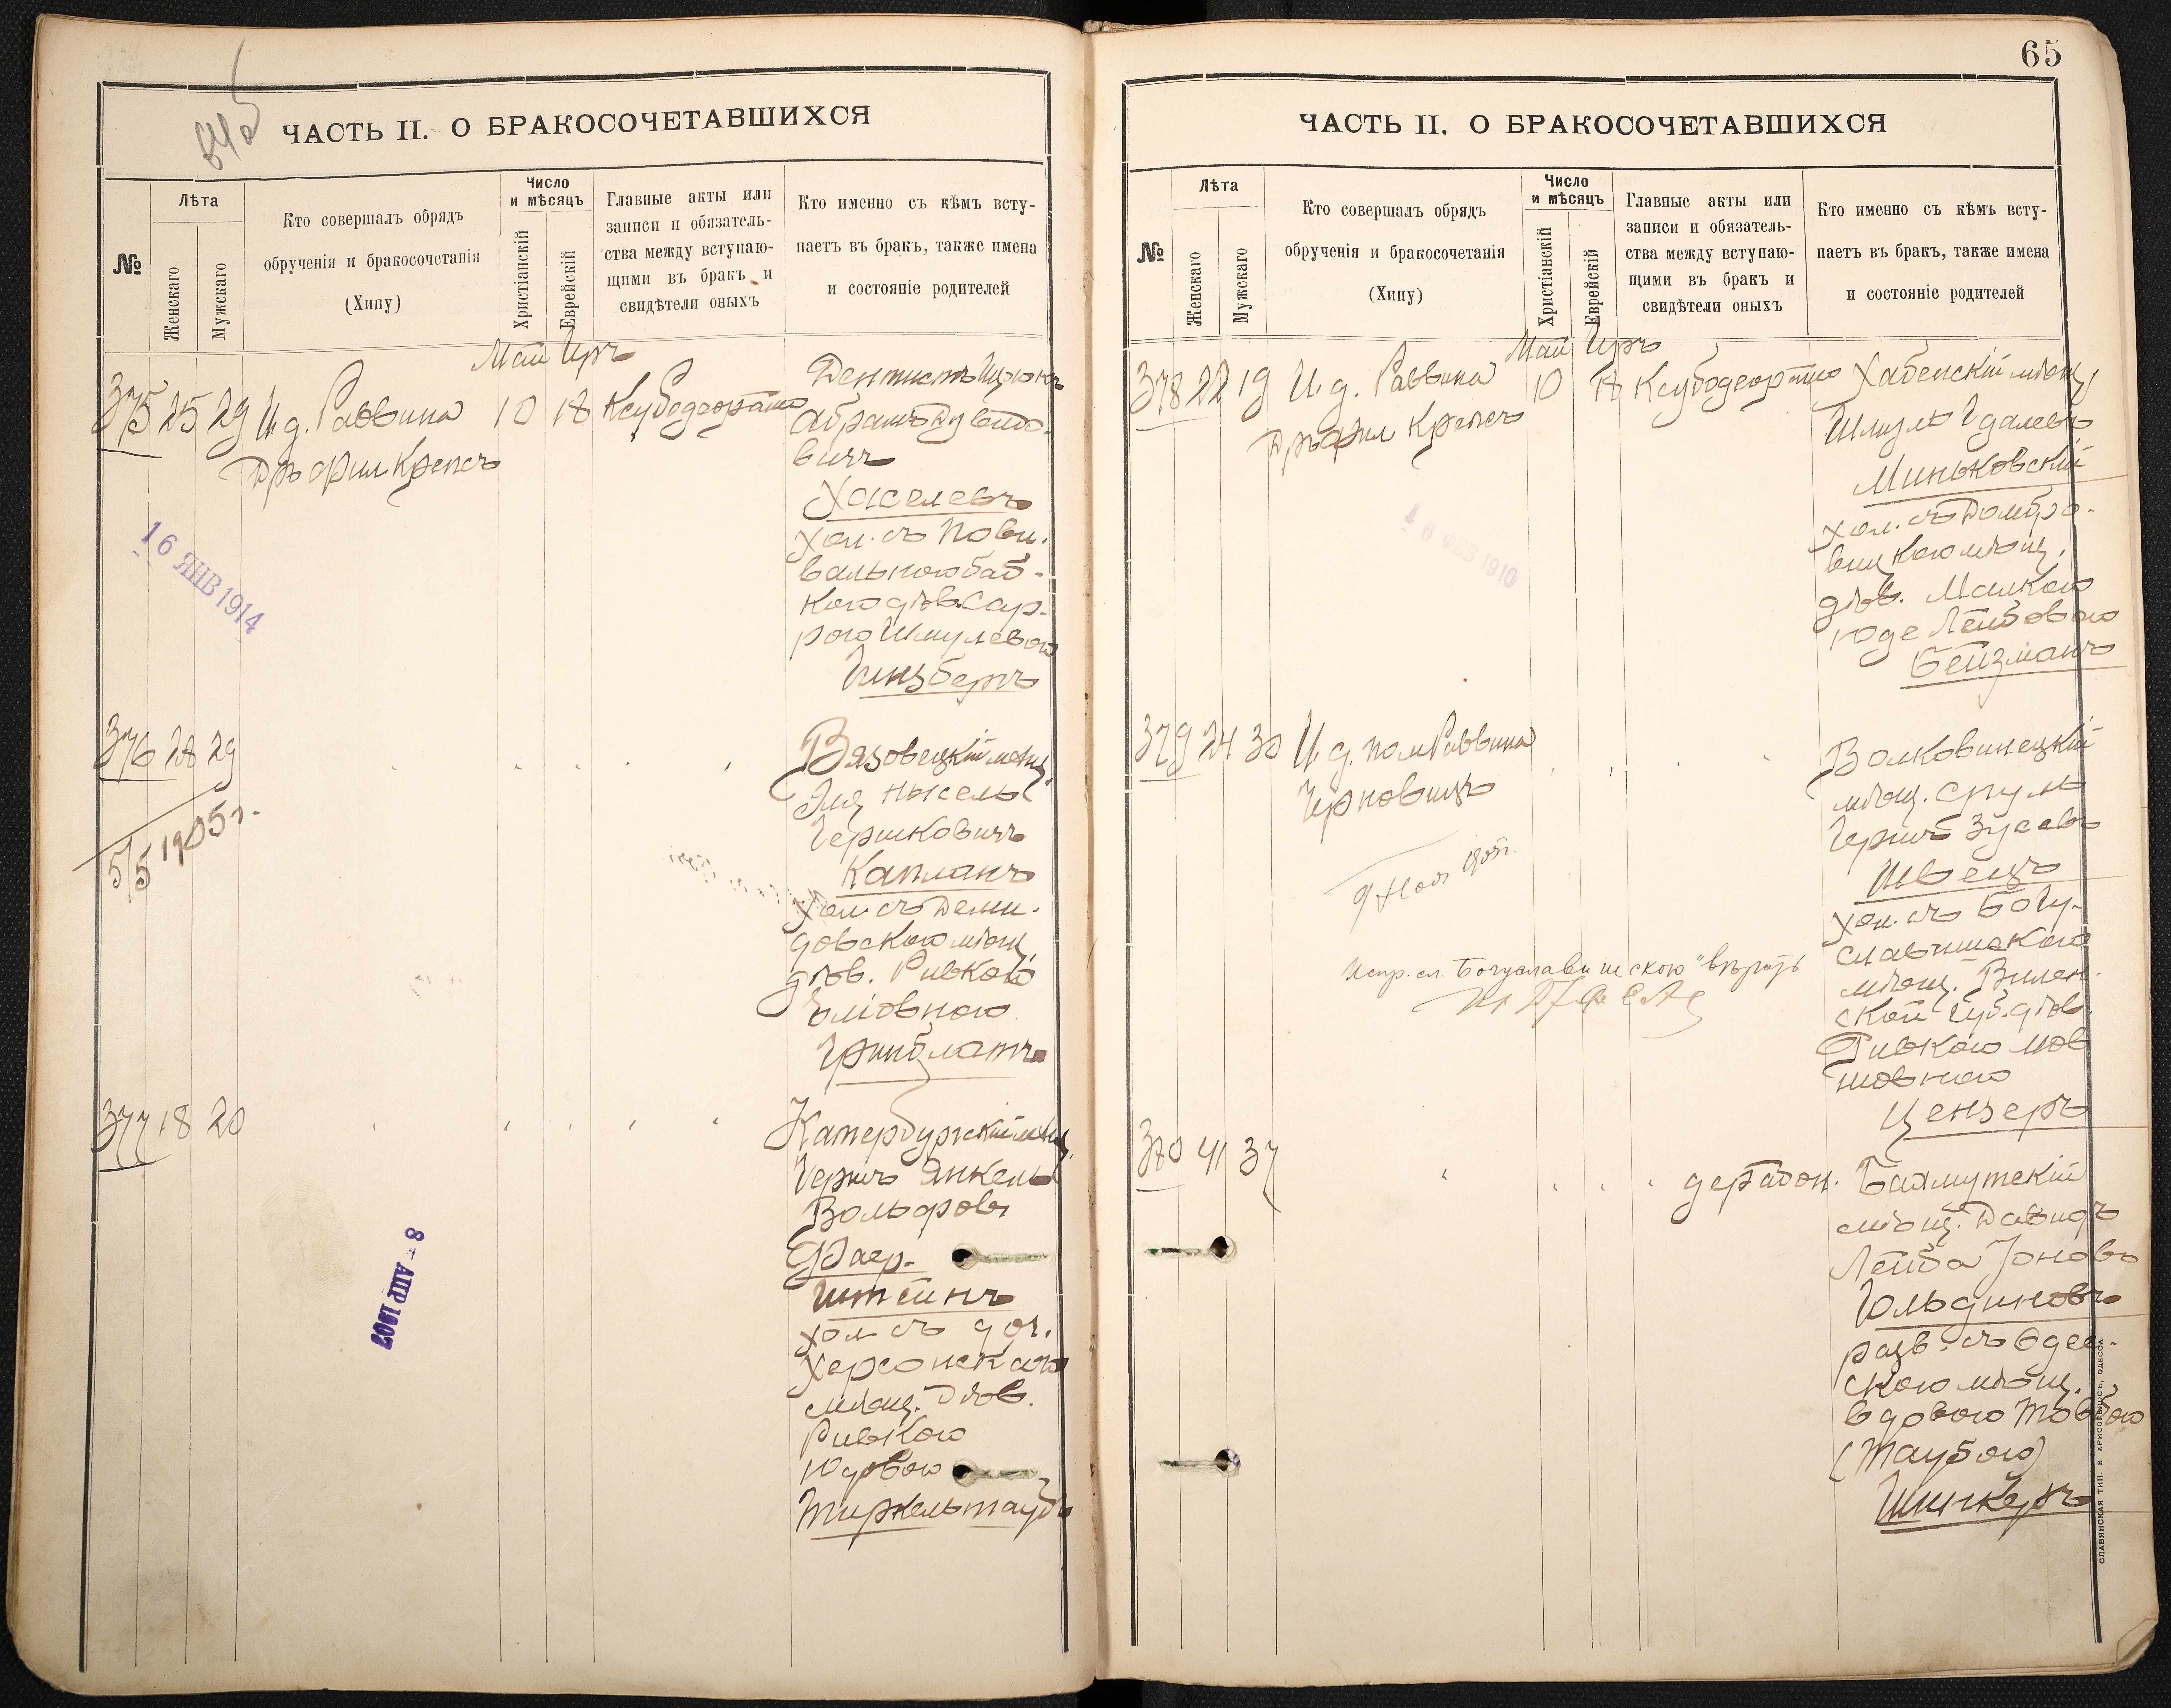 ЧАСТЬ II. О БРАКОСОЧЕТАВШИХСЯ
№
Лѣта
Женскаго
Мужскаго
Кто совершалъ обрядъ
обрученія и бракосочетанія
(Хипу)
Число
и мѣсяцъ
Христіанскій
Еврейскій
Главные акты или
записи и обязатель-
ства между вступаю-
щими въ бракъ и
свидѣтели оныхъ
Кто именно съ кѣмъ всту-
паетъ въ бракъ, также имена
и состояніе родителей
Май Іяръ
375 25 29 И. д. Раввина 10 18
Дръ Крепсъ
Дентистъ
Абрамъ
вичъ
Хаселевъ
хол. съ пови-
вальною баб-
кою дѣв. Сар-
рою Шмулевою
Гинзбергъ
16 ЯНВ 1914
376 28 29
Вязовецкій мѣщ.
Гершковичъ
Капланъ
хол. съ Деми-
довскою мѣщ.
дѣв. Ривкою
Гринблатъ
5/5 1905 г.
377 18 20
Катербургскій мѣщ.
Гершъ Янкель
Вольфовъ
Фаер-
штейнъ
хол. съ доч.
Херсонскаго
мѣщ. дѣв.
Ривкою
Юдовою
Тиркельтаубъ
8 - АПР 1907
65
ЧАСТЬ II. О БРАКОСОЧЕТАВШИХСЯ
№
Лѣта
Женскаго
Мужскаго
Кто совершалъ обрядъ
обрученія и бракосочетанія
(Хипу)
Число
и мѣсяцъ
Христіанскій
Еврейскій
Главные акты или
записи и обязатель-
ства между вступаю-
щими въ бракъ и
свидѣтели оныхъ
Кто именно съ кѣмъ всту-
паетъ въ бракъ, также имена
и состояніе родителей
Май Іяръ
378 22 19 И. д. Раввина 10 18
Дръ Крепсъ
Хабенскій мѣщ.
Шмуль Удалевъ
Миньковскій
хол. съ Домбро-
вицкою мѣщ.
дѣв. Малкою
Юде Лейбовою
Бейзманъ
6 ФЕВ 1910
379 24 30 И. д. пом. Раввина
Черновицъ
Волковинецкій
мѣщ. Сруль
Гершъ Зусевъ
Швецъ
хол. съ Богу-
славишскою
мѣщ. Вилен-
ской губ. дѣв.
Ривкою Мов-
шовною
Цензеръ
1905 г.
Испр. сл. "Богуславишскою" вѣрить
380 41 37
Бахмутскій
мѣщ. Давидъ
Лейба Іоновъ
Гольдиновъ
разв. съ Одес-
скою мѣщ.
вдовою Товбою
(Таубою)
Шинкеръ
СЛАВЯНСКАЯ ТИП. Е. ХРИСОГЕЛОСЪ, ОДЕССА